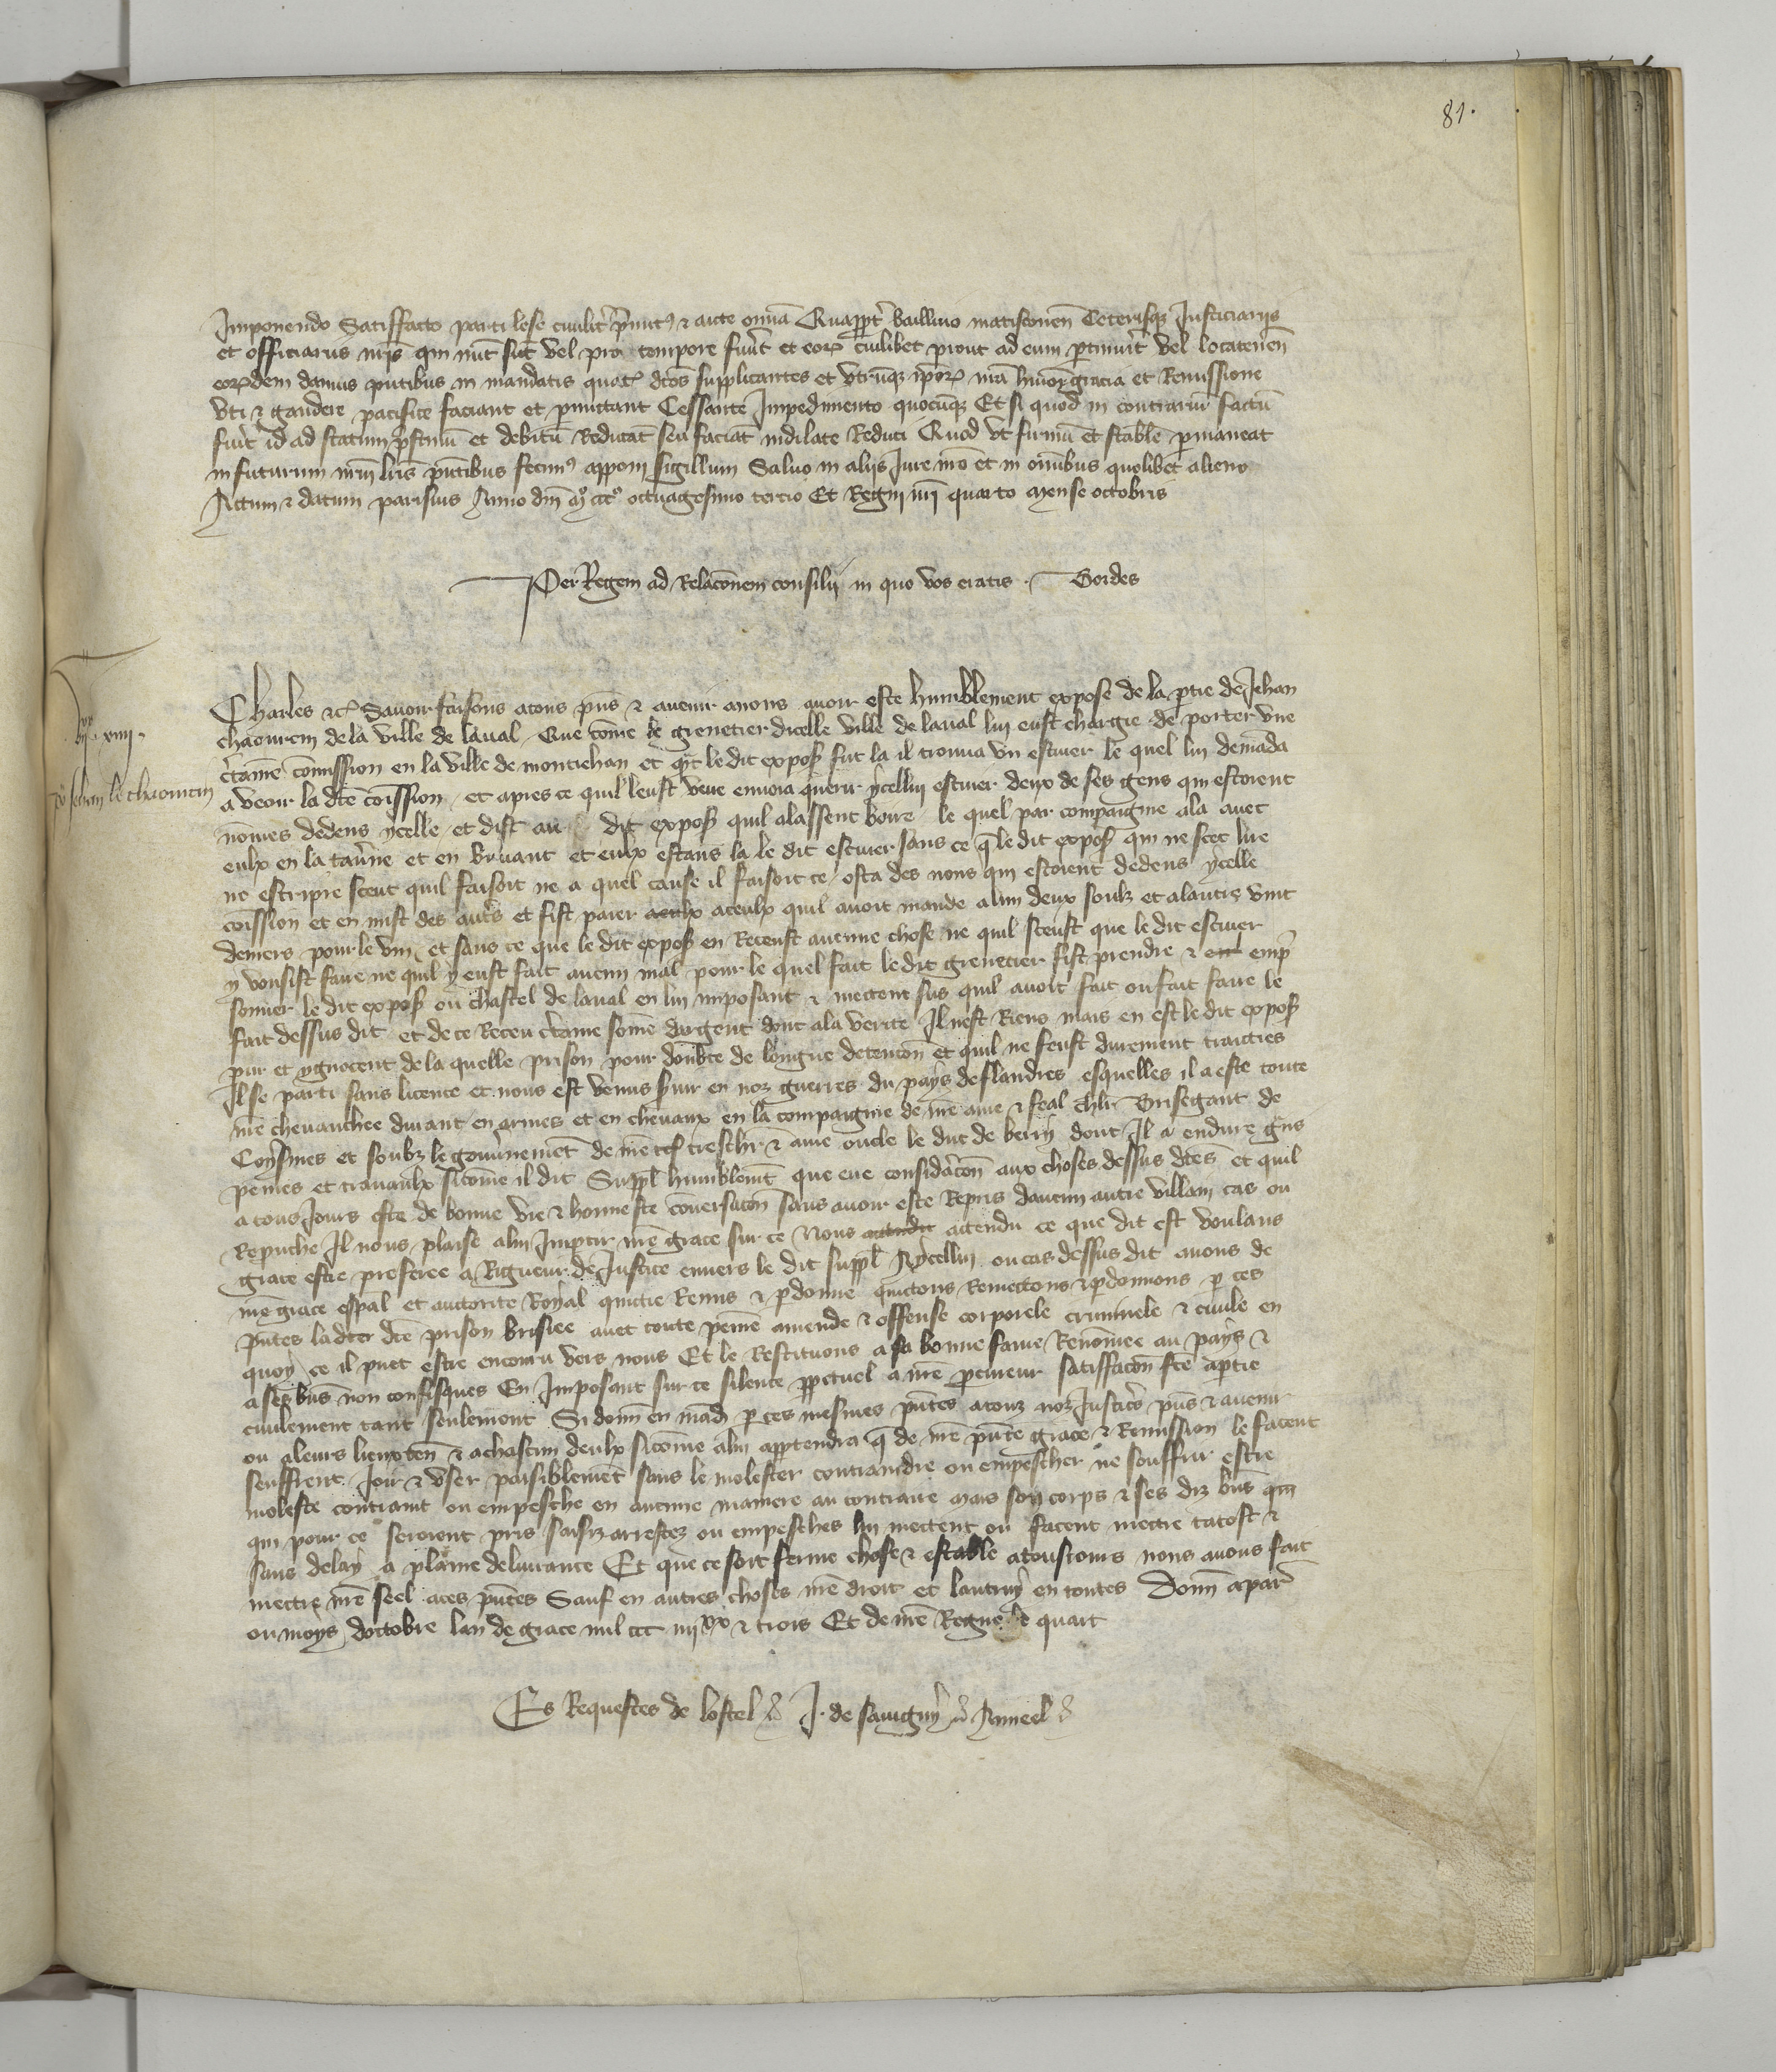 81.
Imponendo Satiffacto parti lese civilit p̃mitꝰ & ante omīa Quapp̱t baillivo matisconeñ Ceterisqꝫ Justiciariis
et officiariis nr̃is qui nūc sūt vel pro tempore fu̾int et eoꝝ cuilibet prout ad eum p̱tinu̾it vel locateneñ
eoꝝdem damus p̃ntibus in mandatis quatꝰ dc̃os supplicantes et vtrūqꝫ ip̃oꝝ nr̃a hm̃oi gracia et Remissione
Vti & gaudere pacifice faciant et p̱mittant Cessante Impedimento quocūqꝫ Et si quod in contrariū factū
fu̾it id ad statum p̃stinū et debitū Reducāt seu faciāt indilate Reduci Quod vt firmū et stabile p̱maneat
in futurum nr̃m lr̃is p̃ntibus fecimꝰ apponi Sigillum Salvo in aliis Jure nr̃o et in om̃ibus quolibet alieno
Actum & datum parisius Anno dñi mº cccº octuagesimo tercio Et Regni nr̃i quarto mense octobris
Per Regem ad Relac̃onem consilii in quo vos eratis . Gordes
xiiii.
Jehan le chaourcin
Charles &c Savoir faisons a tous p̃ns & avenir a nous avoir este humblement expose de la p̱tie de Jehan
chaourcin de la ville de laval Que cōme le grenetier dicelle ville de laval lui eust chargie de porter vne
c̾taine cōmission en la ville de montiehan et qñt le dit expoſ fut la il trouva un escuier le quel lui demāda
a veoir la dc̃e cōission et apres ce quil leust veue envoia querir ycellui escuier deux de ses gens qui estoient
nōmes dedens ycelle et dist au dit expoſ quil alassent boire le quel par compaignie ala avec
eulx en la tav̾ne et en buvant et eulx estans la le dit escuier sans ce q̃ le dit expoſ qui ne scet lire
ne escripre sceut quil faisoit ne a quel cause il faisoit ce osta des nons qui estoient dedens ycelle
cōission et en mist des aut̾s et fist paier aceulx quil avoit mande a lun deux soulz et a lautre vint
deniers pour le vin et sans ce que le dit expoſ en Receust aucune chose ne quil sceust que le dit escuier
y vousist faire ne quil y eust fait aucun mal pour le quel fait le dit grenetier fist prendre & emp̱
sonner le dit expoſ ou chastel de laval en lui imposant & mectent sus quil avoit fait ou fait faire le
fait dessus dit et de ce Receu c̾taine sōme dargent dont a la verite Il nest Riens mais en est le dit expoſ
pur et ygnocent de la quelle prison pour doubte de longue detenc̃on et quil ne feust durement traicties
Il se parti sans licence et nous est venus s̾vir en noz guerres du pays de flandres esquelles il a este toute
nr̃e chevauchee durant en armes et en chevaux en la compaignie de nr̃e ame & feal chlr Brisegaut de
Coysmes et soubz le gouv̾nemēt de nr̃e treschr & ame oncle le duc de berry dont Il a endure gñs
peines et travaulx si cōme il dit Suppl humblemt que eue considerac̃on aux choses dessus dc̃es et quil
a tous Jours este de bonne vie & honneste conv̾sac̃on sans avoir este Repris daucun autre villain cas ou
Reprouche Il nous plaise a lui Imptir nr̃e grace sur ce Nous attendu ce que dit est voulans
grace estre preferee a Rigueur de Justice envers le dit suppl A ycellui ou cas dessus dit avons de
nr̃e grace esp̃al et auctorite Royal quictie Remis & p̱donne quictons Remectons & p̱donnons p̱ ces
p̃ntes la dc̃e prison brisiee avec toute peine amende & offense corporele criminele & civile en
quoy ce il puet estre encouru vers nous Et le Restituons a sa bonne fame Renōmee au pays &
a ses biens non confisques En Imposant sur ce silence ppetuel a nr̃e p̱cureur satiffac̃on fc̃e a p̱tie
civilement tant seulement Si donn en mand p̱ ces mesmes p̃ntes a touz noz Justiciers p̃ns & avenir
ou a leurs lieuxten & a chascun deulx si cōme a lui app̱tendra q̃ de nr̃e p̃nte grace & Remission le facent
seuffrent Joir & vser paisiblement sans le molester contraindre ou empescher ne souffrir estre
moleste contraint ou empesche en aucune maniere au contraire mais son corps & ses diz biens qui
qui pour ce seroient pris saisiz arrestez ou empesches lui mectent ou facent mectre tatost &
sans delay a plaine delivrance Et que ce soit ferme chose & estable a tousiours nous avons fait
mectre nr̃e seel a ces p̃ntes Sauf en autres choses nr̃e droit et lautruy en toutes Donn a par̾
ou moys doctobre lan de grace mil ccc iiii xx & trois Et de nr̃e Regne le quart
Es Requestes de lostel J. de savigny Anneel